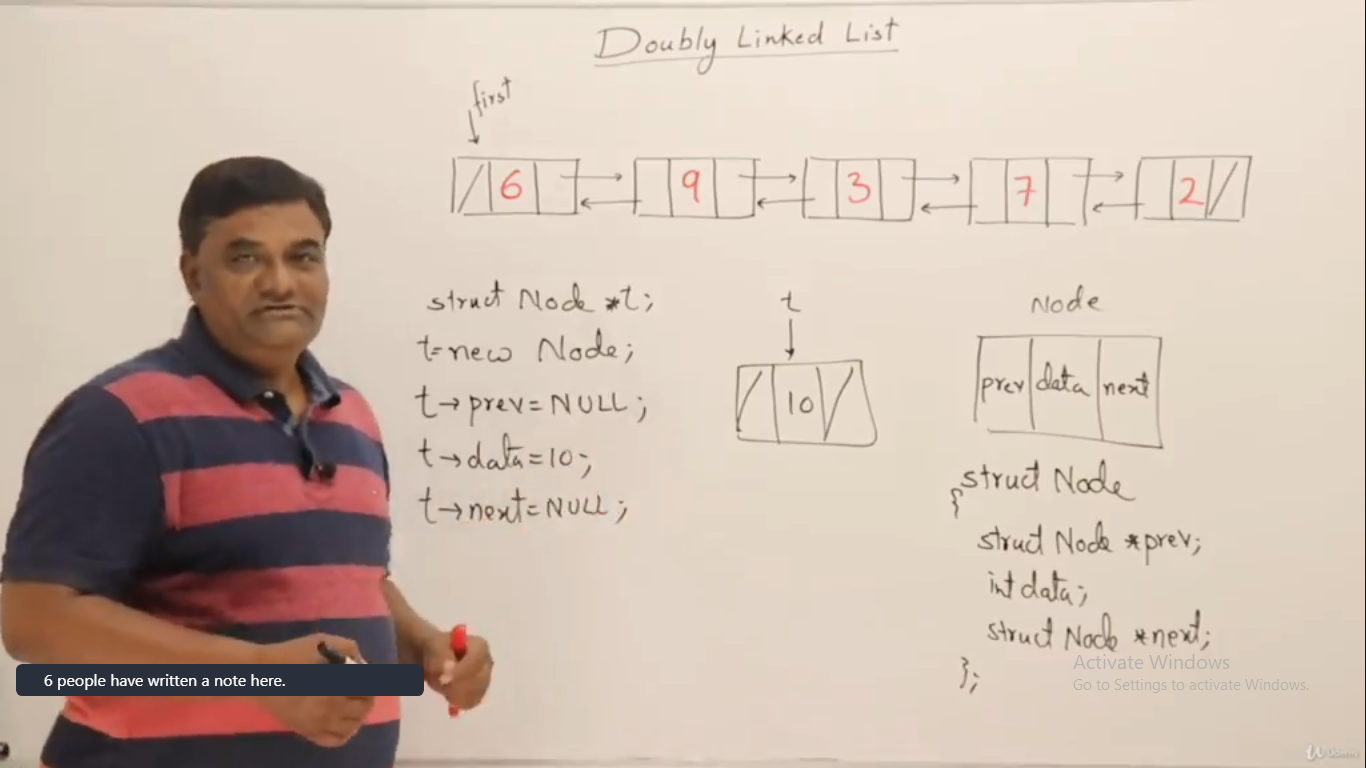 Doubly Linked List
first
6 9 3 7 2
struct Node *t;
t=new Node;
t→prev=NULL;
t→data=10;
t→next=NULL;
t
10
Node
prev data next
struct Node
{
struct Node *prev;
int data;
struct Node *next;
};
6 people have written a note here.
Activate Windows
Go to Settings to activate Windows.
Udemy